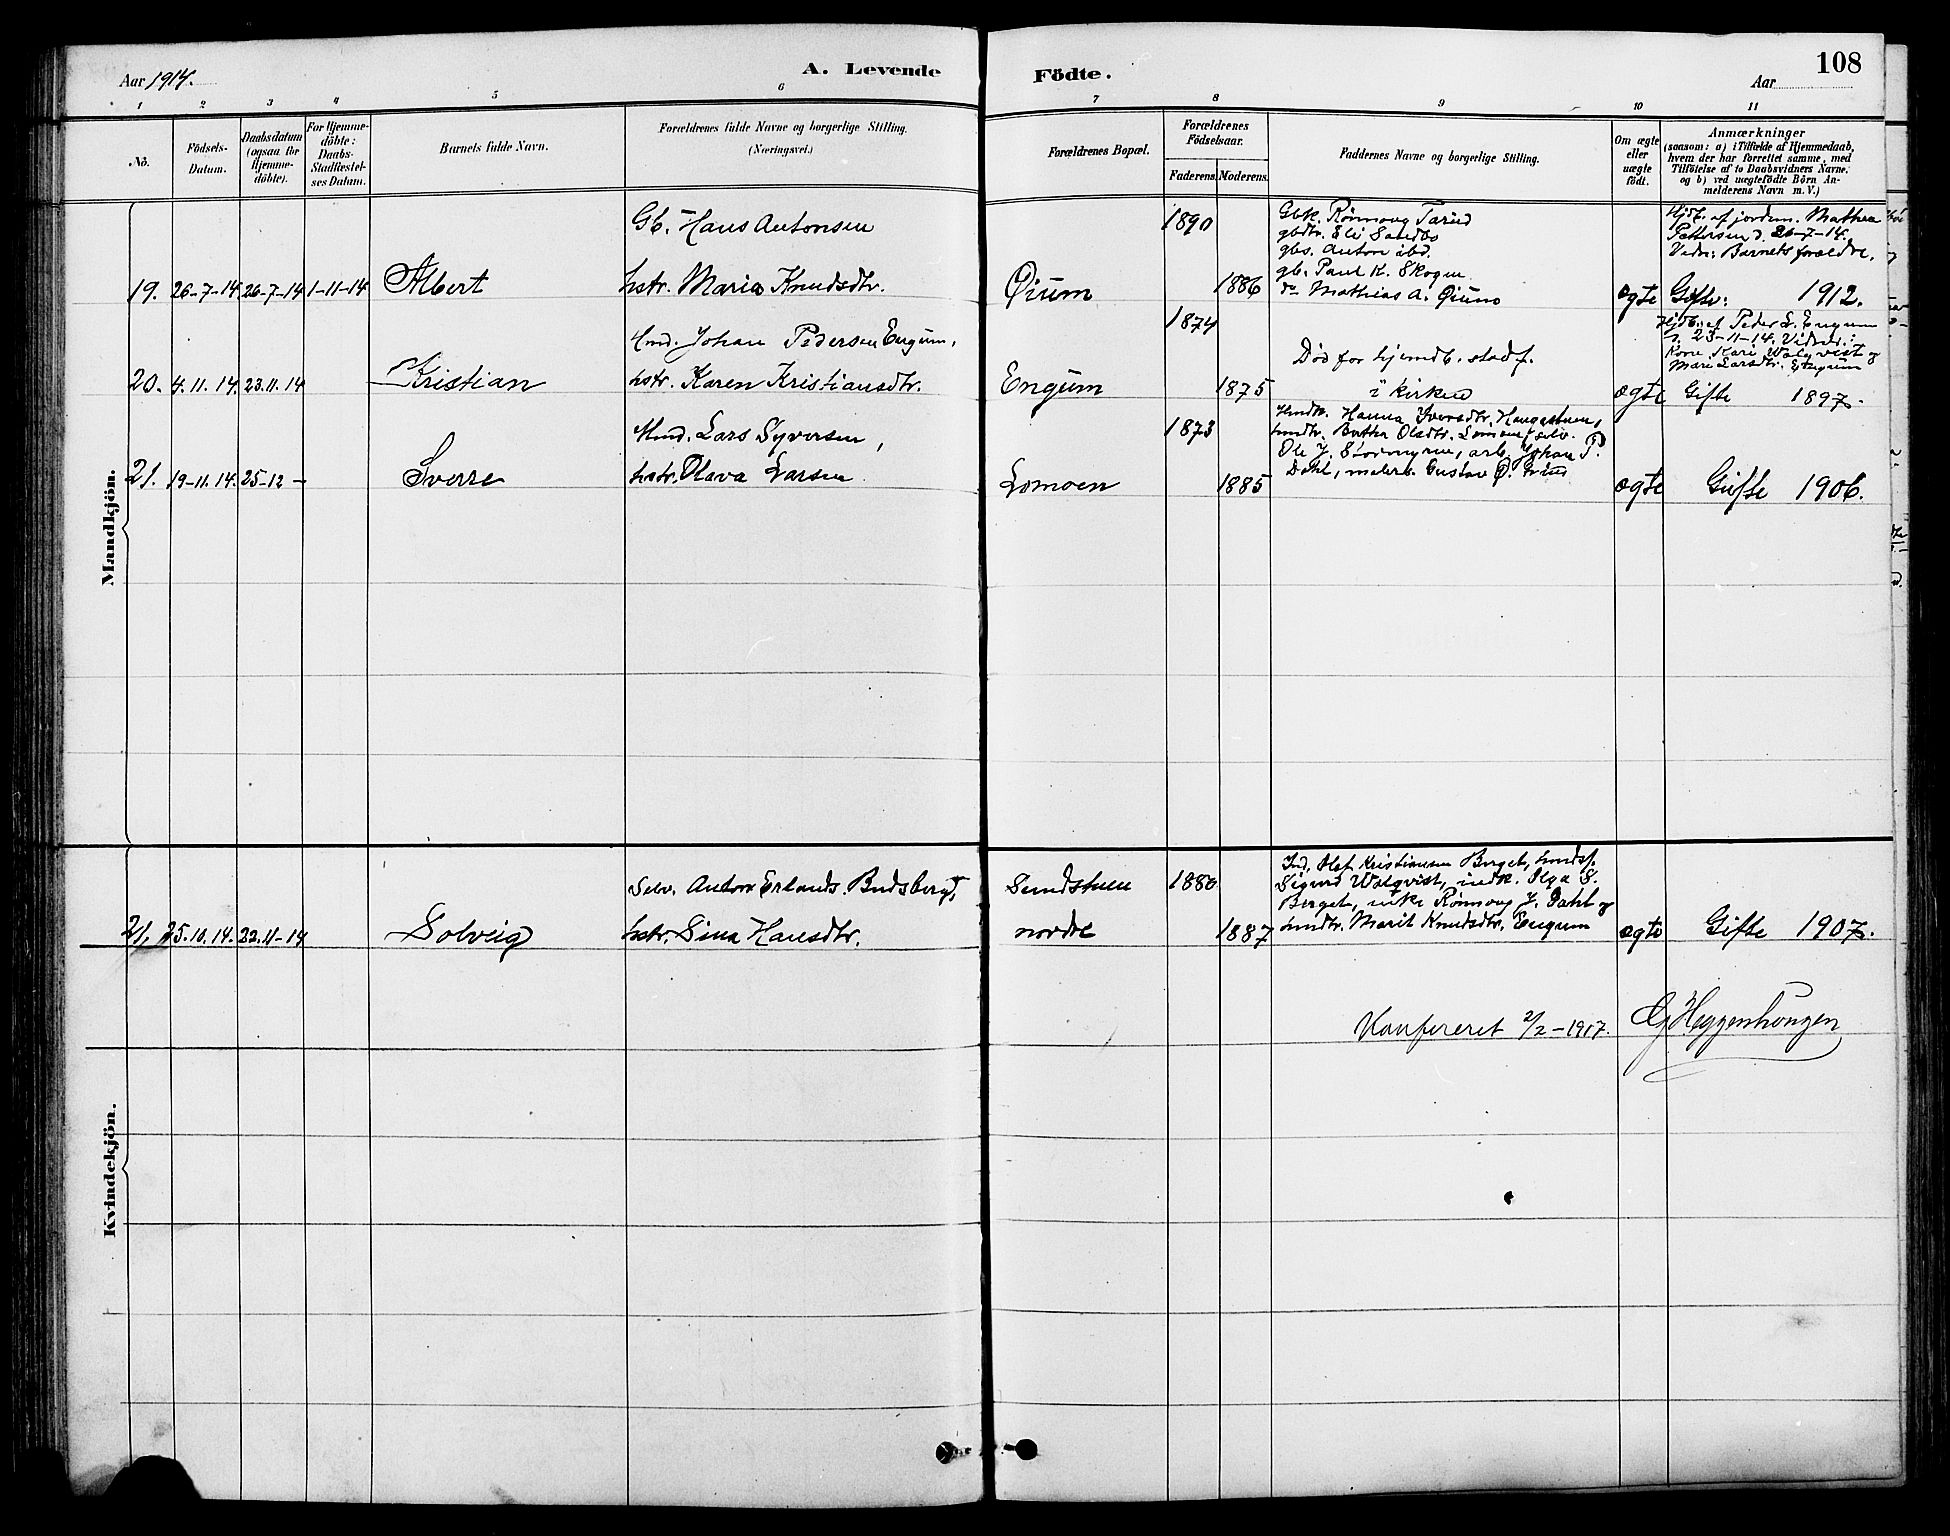 Aar 1914.
A. Levende
Födte.
Aar
108
1 2 3 4 5 6 7 8 9 10 11
No.
Födsels-Datum.
Daabsdatum (ogsaa for Hjemme-döbte).
For Hjemme-döbte: Daabs-Stadfæstel-ses Datum.
Barnets fulde Navn.
Forældrenes fulde Navne og borgerlige Stilling.
(Næringsvei.)
Forældrenes Bopæl.
Forældrenes Födselsaar.
Faderens. Moderens.
Faddernes Navne og borgerlige Stilling.
Om ægte eller uægte födt.
Anmærkninger
(saasom: a) i Tilfælde af Hjemmedaab,
hvem der har forrettet samme, med
Tilföielse af to Daabsvidners Navne,
og b) ved uægtefödte Börn An-
melderens Navn m. V.)
Mandkjön.
19. 26-7-14. 26-7-14 1-11-14 Albert
Gb. Hans Antonsen
hstr. Maria Knudsdtr.
Øium
1890
1886
Gbk. Rønnoug
gbdtr. Eli Sandbo
gbs. Anton ibd.
gb. Paul K. Skogen
do Mathias A. Øiums
ægte
Hjdb. af jordm. Mathea
Pettersen d. 26-7-14.
Vidn: Barnets forældre.
Gifte: 1912.
20. 4.11.14. 23.11.14 Kristian
Hmd. Johan Pedersen Engum,
hstr. Karen Kristiansdtr.
Engum
1874
1875
Død før hjemdb. stadf.
i kirken
ægte
Hjdb. af Peder L. Engum
23-11-14. Vidner:
Kone Kari Walqvist og
Mari Larsdtr. Engum
Gifte 1897.
21. 19-11.14. 25-12- Sverre
Hmd. Lars Syversen,
hstr. Olava Larsen
Lomoen
1873
1885
Hmdk. Hanna Iversdtr. Haugastuen,
hmdtr. Berthe Olsdtr. Lomoen, selv.
Ole J. Stormyren, arb. Johan P.
Dahl, malerb. Gustav Ø.
ægte
Gifte 1906.
Kvindekjön.
21. 25.10.14. 22.11-14 Solveig
Selv. Anton Erlands. Budsberget,
hstr. Sina Hansdtr.
Sundstuen
nordre
1880
1887
Ind. Olaf Kristiansen Berget, hmdsf.
Sigurd Walqvist, indk. Olga S.
Berget, Rønnoug J. Dahl og
hmdtr. Marit Knudsdtr. Engum
ægte
Gifte 1907.
Konfereret 2/2-1917. G Heggenhougen